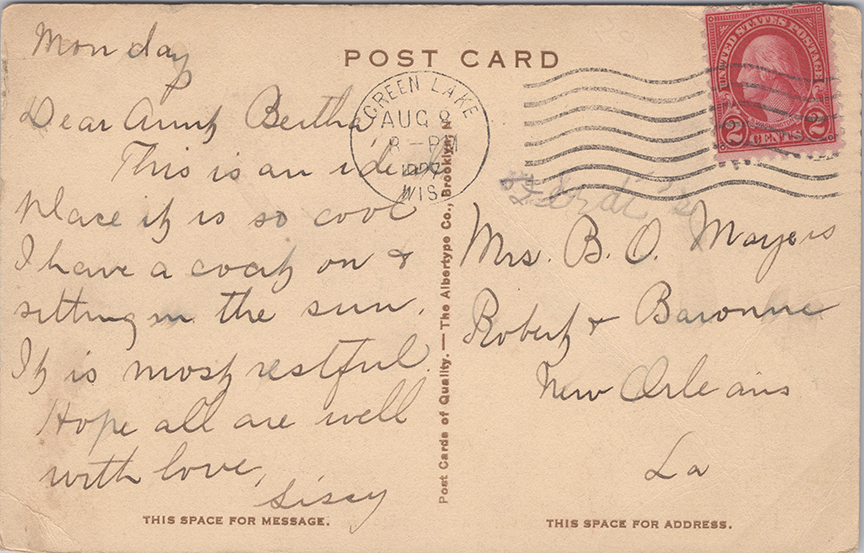 Monday
Dear Aunt Bertha
This is an ideal
place it is so cool
I have a coat on &
sitting in the sun.
It is most restful.
Hope all are well
with love,
Sissy
THIS SPACE FOR MESSAGE.
POST CARD
GREEN LAKE
AUG 8
8-PM
WIS.
UNITED STATES POSTAGE
2 CENTS 2
Post Cards of Quality. — The Albertype Co., Brooklyn, N.
Mrs. B. O. Mayers
Robert & Baronne
New Orleans
La
THIS SPACE FOR ADDRESS.